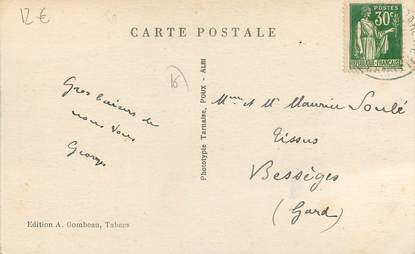 12 €
CARTE POSTALE
POSTES
30c
RÉPUBLIQUE FRANÇAISE
Gros baisers de
nous tous
Georges
Phototypie Tarnaise, POUX - ALBI
Mme et Mr Maurice Soulé
Tissus
Bessèges
(Gard)
Edition A. Gombeau,